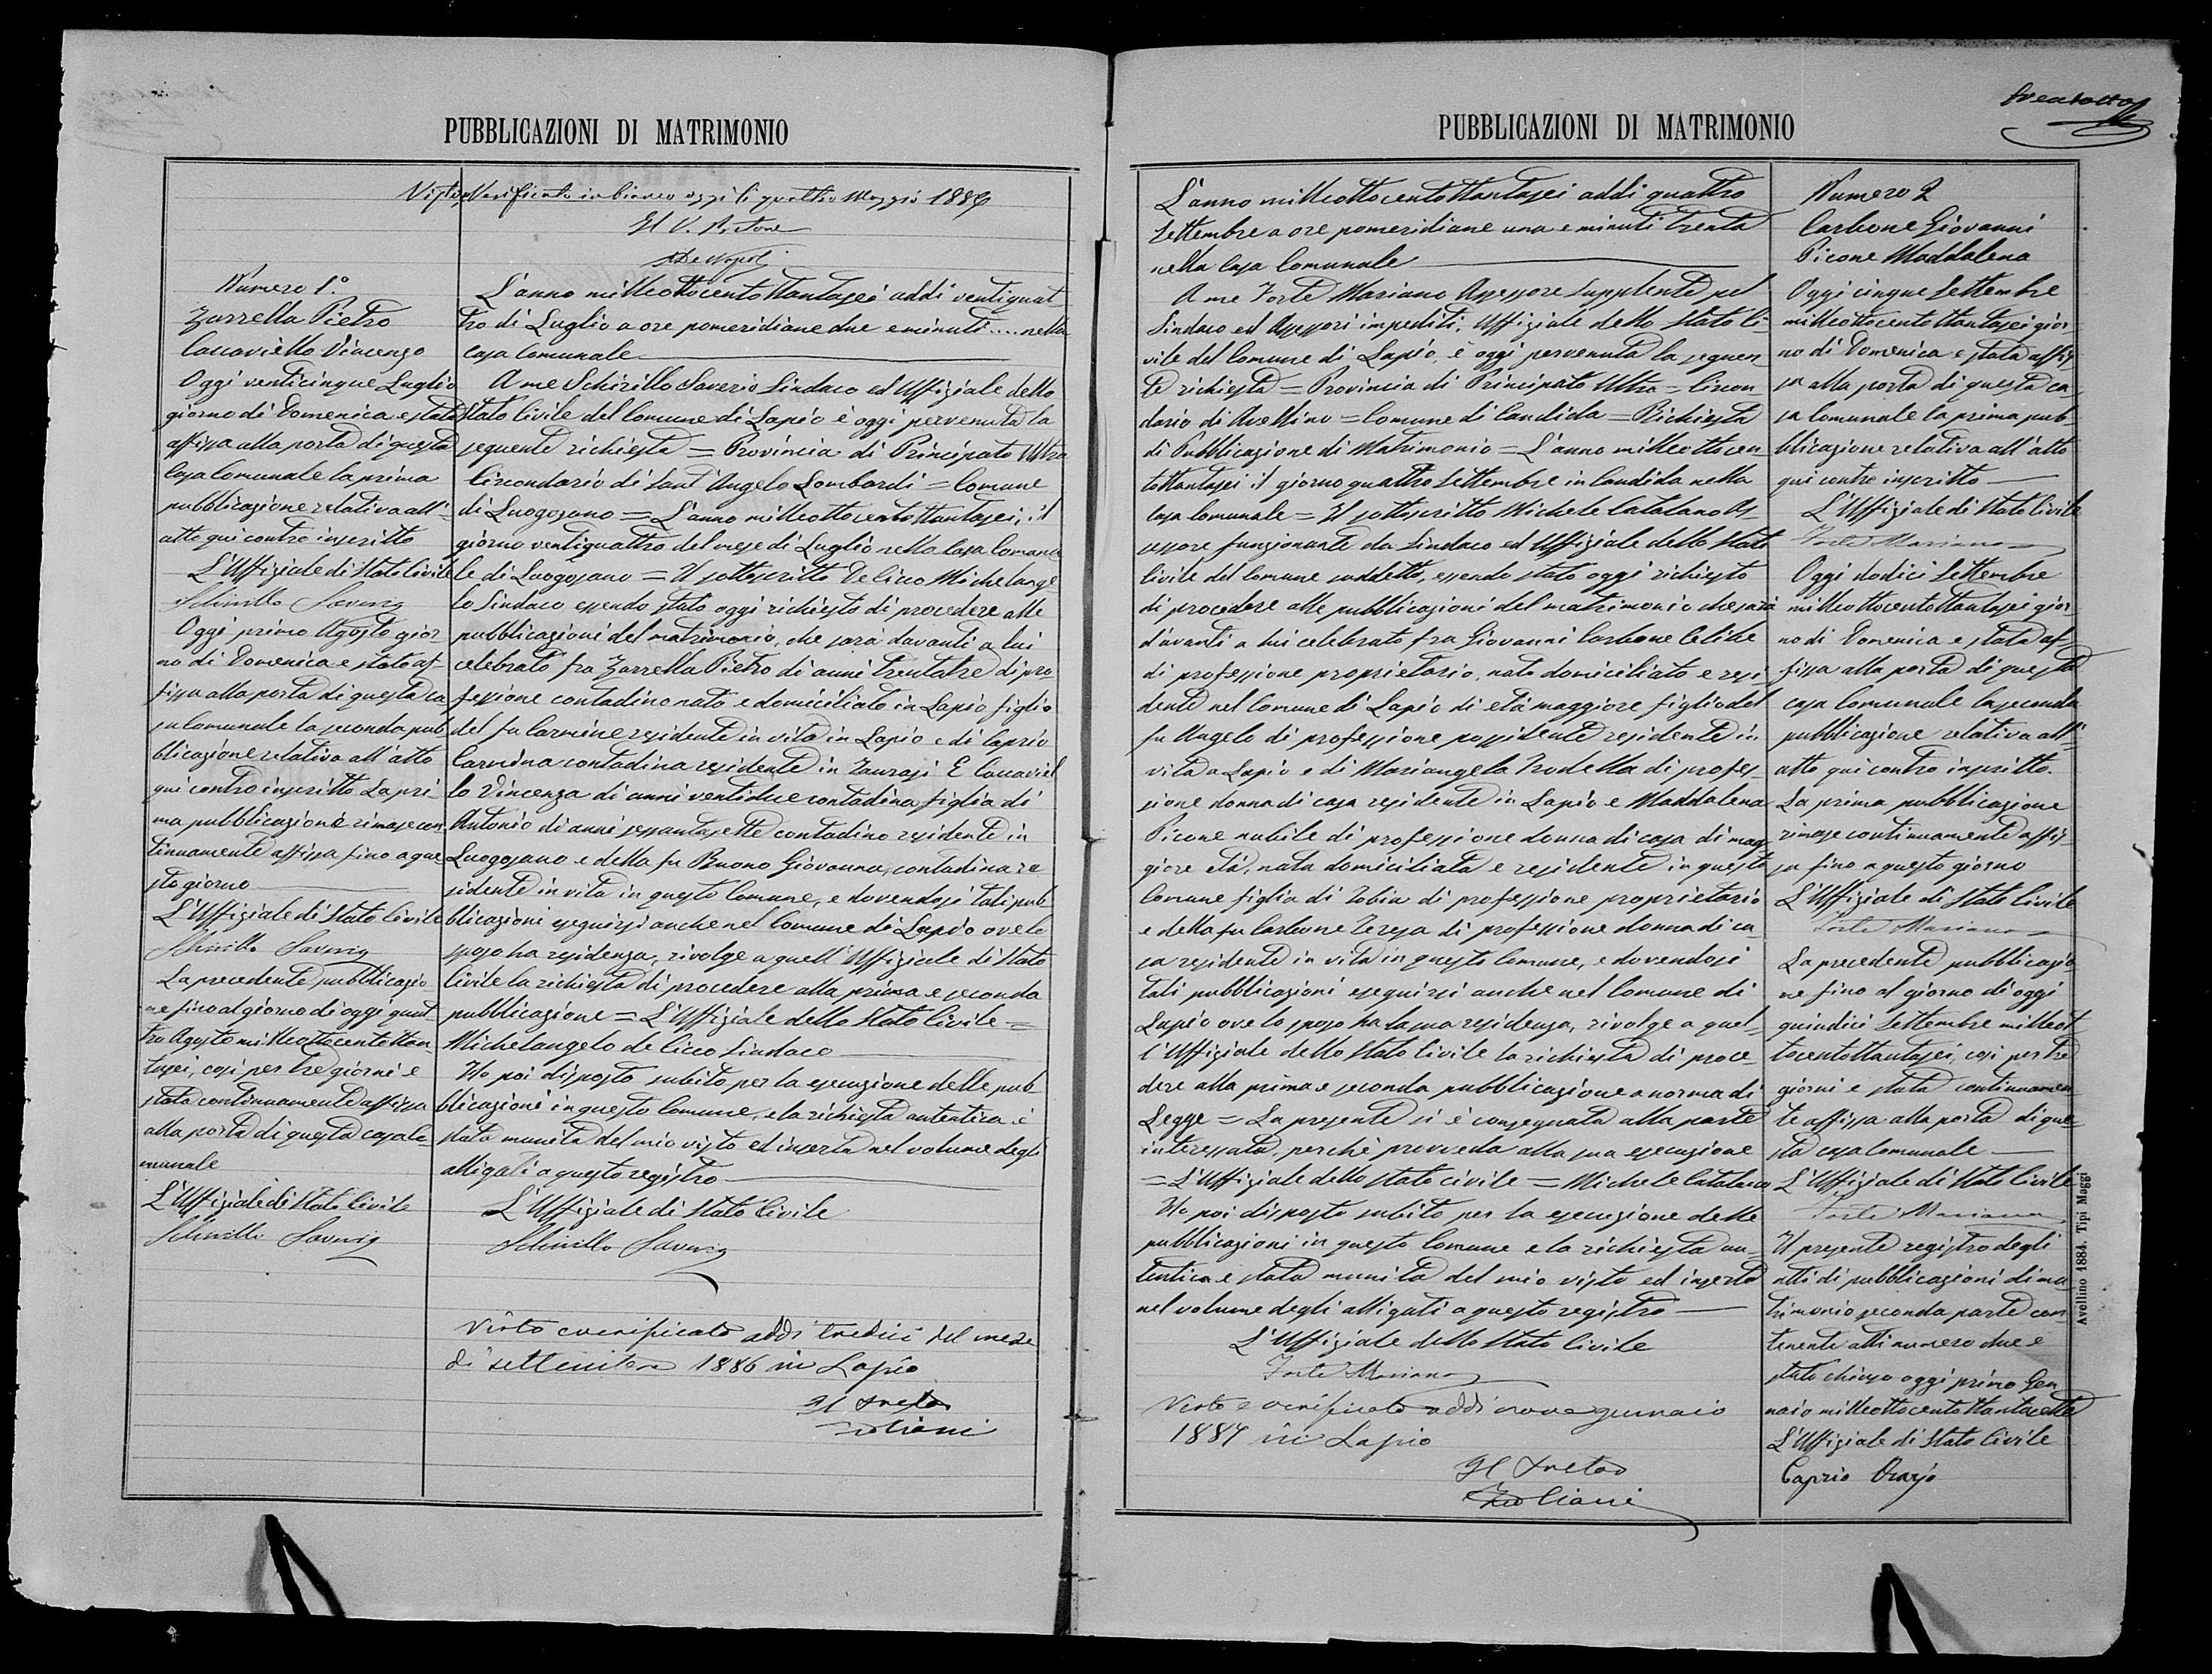 PUBBLICAZIONI DI MATRIMONIO
Visto, Verificato in bianco oggi li quattro Maggio 1886
Il V. Pretore
De Napoli
Numero 1.°
Zarrella Pietro
Caccaviello Vincenza
Oggi venticinque Luglio
giorno di Domenica e stata
affissa alla porta di questa
Casa Comunale la prima
pubblicazione relativa all'
atto qui contro inscritto
L'Uffiziale di Stato Civile
Schirillo Saverio
Oggi primo Agosto gior
no di Domenica e stata af
fissa alla porta di questa ca
sa Comunale la seconda pub
blicazione relativa all'atto
qui contro inscritto La pri
ma pubblicazione rimase con
tinuamente affissa fino a que
sto giorno
L'Uffiziale di Stato Civile
Schirillo Saverio
La precedente pubblicazio
ne fino al giorno di oggi quat
tro Agosto milleottocentottan
tasei, cosi per tre giorni e
stata continuamente affissa
alla porta di questa casa Co
munale
L'Uffiziale di Stato Civile
Schirillo Saverio
L'anno milleottocentottantasei addi ventiquat
tro di Luglio a ore pomeridiane due e minuti .... nella
casa Comunale
A me Schirillo Saverio Sindaco ed Uffiziale dello
Stato Civile del Comune di Lapio è oggi pervenuta la
seguente richiesta = Provincia di Principato Ultra
Circondario di Sant'Angelo Lombardi = Comune
di Luogosano = L'anno milleottocentottantasei, il
giorno ventiquattro del mese di Luglio nella Casa Comuna
le di Luogosano = Il sottoscritto De Cicco Michelange
lo Sindaco essendo stato oggi richiesto di procedere alle
pubblicazioni del matrimonio, che sara davanti a lui
celebrato fra Zarrella Pietro di anni trentatre di pro
fessione contadino nato e domiciliato in Lapio figlio
del fu Carmine residente in vita in Lapio e di Caprio
Carmina contadina residente in Taurasi E Caccaviel
lo Vincenza di anni ventidue contadina figlia di
Antonio di anni sessantasette contadino residente in
Luogosano e della fu Buono Giovanna, contadina re
sidente in vita in questo Comune, e dovendosi tali pub
blicazioni eseguirsi anche nel Comune di Lapio ove lo
sposo ha residenza, rivolge a quell'Uffiziale di Stato
Civile la richiesta di procedere alla prima e seconda
pubblicazione = L'Uffiziale dello Stato Civile =
Michelangelo de Cicco Sindaco
Ho poi disposto subito per la esecuzione delle pub
blicazioni in questo Comune, e la richiesta autentica è
stata munita del mio visto ed inserta nel volume degli
alligati a questo registro
L'Uffiziale di Stato Civile
Schirillo Saverio
Visto e verificato addì tredici del mese
di settembre 1886 in Lapio
Il Pretore
PUBBLICAZIONI DI MATRIMONIO
L'anno milleottocentottantasei addi quattro
Settembre a ore pomeridiane una e minuti trenta
nella Casa Comunale
A me Forte Mariano Assessore Supplente pel
Sindaco ed Assessori impediti, Uffiziale dello Stato Ci
vile del Comune di Lapio, è oggi pervenuta la seguen
te richiesta = Provincia di Principato Ultra = Circon
dario di Avellino = Comune di Candida = Richiesta
di Pubblicazione di Matrimonio = L'anno milleottocen
tottantasei il giorno quattro Settembre in Candida nella
Casa Comunale = Il sottoscritto Michele Catalano As
sessore funzionante da Sindaco ed Uffiziale dello Stato
Civile del Comune suddetto, essendo stato oggi richiesto
di procedere alle pubblicazioni del matrimonio che sarà
davanti a lui celebrato fra Giovanni Carbone Celibe
di professione proprietario, nato domiciliato e resi
dente nel Comune di Lapio di età maggiore figlio del
fu Angelo di professione possidente residente in
vita a Lapio e di Mariangela Trodella di profes
sione donna di casa residente in Lapio e Maddalena
Picone nubile di professione donna di casa di mag
giore età, nata domiciliata e residente in questo
Comune figlia di Tobia di professione proprietario
e della fu Carbone Teresa di professione donna di ca
sa residente in vita in questo Comune, e dovendosi
tali pubblicazioni eseguirsi anche nel Comune di
Lapio ove lo sposo ha la sua residenza, rivolge a quel
l'Uffiziale dello Stato Civile la richiesta di proce
dere alla prima e seconda pubblicazione a norma di
Legge = La presente si è consegnata alla parte
interessata, perchè provveda alla sua esecuzione
= L'Uffiziale dello stato civile = Michele Catalano
Ho poi disposto subito per la esecuzione delle
pubblicazioni in questo Comune e la richiesta au
tentica e stata munita del mio visto ed inserta
nel volume degli alligati a questo registro
L'Uffiziale dello Stato Civile
Forte Mariano
Visto e verificato addì nove gennaio
1887 in Lapio
Il Pretore
Numero 2
Carbone Giovanni
Picone Maddalena
Oggi cinque Settembre
milleottocentottantasei gior
no di Domenica e stata affis
sa alla porta di questa ca
sa Comunale la prima pub
blicazione relativa all'atto
qui contro inscritto
L'Uffiziale di Stato Civile
Forte Mariano
Oggi dodici Settembre
milleottocentottantasei gior
no di Domenica e stata af
fissa alla porta di questa
casa Comunale la seconda
pubblicazione relativa all'
atto qui contro inscritto.
La prima pubblicazione
rimase continuamente affis
sa fino a questo giorno
L'Uffiziale di Stato Civile
Forte Mariano
La precedente pubblicazio
ne fino al giorno di oggi
quindici Settembre milleot
tocentottantasei, cosi per tre
giorni e stata continuamen
te affissa alla porta di que
sta casa Comunale
L'Uffiziale di Stato Civile
Forte Mariano
Il presente registro degli
atti di pubblicazioni di ma
trimonio seconda parte con
tenente atti numero due è
stato chiuso oggi primo Gen
naio milleottocentottantasette
L'Uffiziale di Stato Civile
Caprio Orazio
Avellino 1884. Tipi Maggi